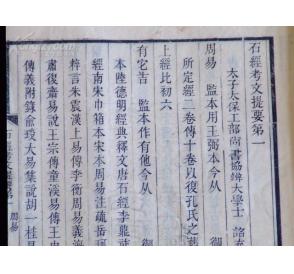 石經考文提要第一
太子太保工部尚書協辦大學士
周易 監本用王弼本今从
所定經二卷傳十卷以復孔氏之舊
上經比初六
有它吉 監本作有他今从
本陸德明經典釋文唐石經李鼎祚
經南宋巾箱本宋本周易注疏岳
梓言朱震漢上易傳李衡周易義海
肅復齋易說王宗傳童溪易傳王
傳義附錄俞琰大易集說胡一桂
周易